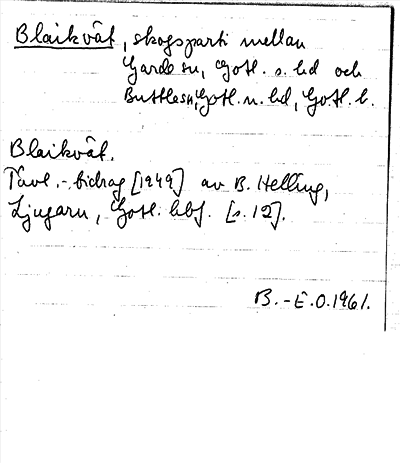 Blaikvät, skogsparti mellan
Garde sn, Gotl. s. hd och
Buttle sn, Gotl. n. hd, Gotl. l.
Blaikvät.
Tävl.-bidrag [1949] av B. Helling,
Ljugarn, Gotl. [s. 12].
B.-E.O. 1961.